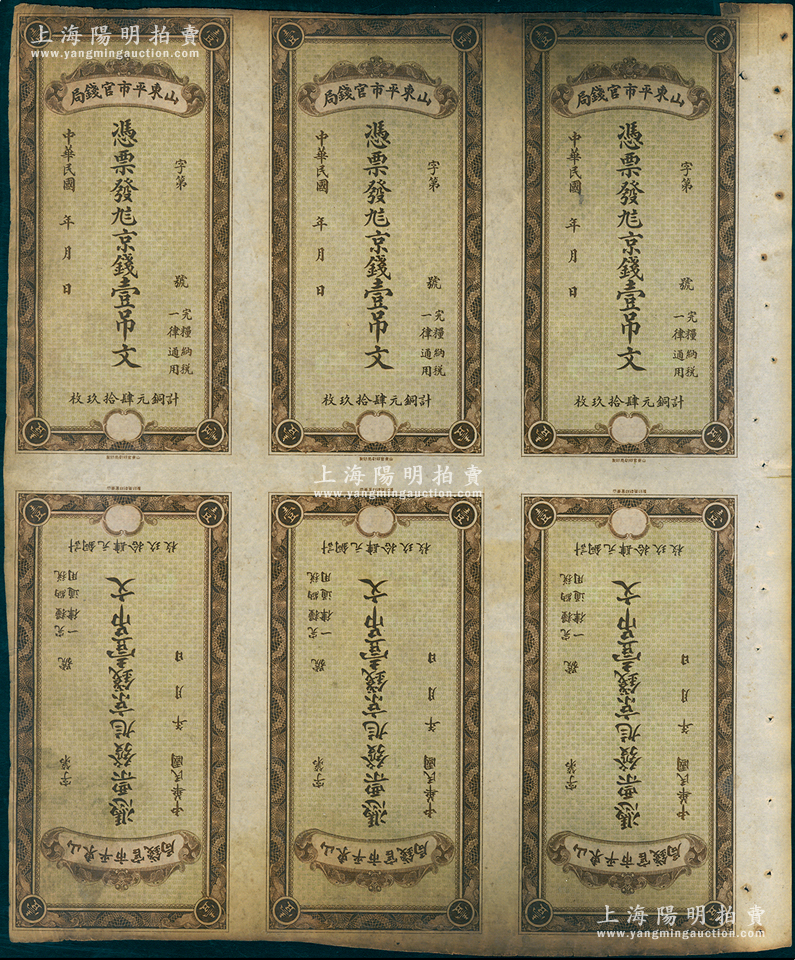 上海陽明拍賣
www.yangmingauction.com
上海陽明拍賣
www.yangmingauction.com
山東平市官錢局
字第 號
憑票發兌京錢壹吊文
完糧納稅
一律通用
中華民國 年 月 日
計銅元肆拾玖枚
山東平市官錢局
字第 號
憑票發兌京錢壹吊文
完糧納稅
一律通用
中華民國 年 月 日
計銅元肆拾玖枚
山東平市官錢局
字第 號
憑票發兌京錢壹吊文
完糧納稅
一律通用
中華民國 年 月 日
計銅元肆拾玖枚
上海陽明拍賣
www.yangmingauction.com
山東平市官錢局
字第 號
憑票發兌京錢壹吊文
完糧納稅
一律通用
中華民國 年 月 日
計銅元肆拾玖枚
山東平市官錢局
字第 號
憑票發兌京錢壹吊文
完糧納稅
一律通用
中華民國 年 月 日
計銅元肆拾玖枚
山東平市官錢局
字第 號
憑票發兌京錢壹吊文
完糧納稅
一律通用
中華民國 年 月 日
計銅元肆拾玖枚
上海陽明拍賣
www.yangmingauction.com